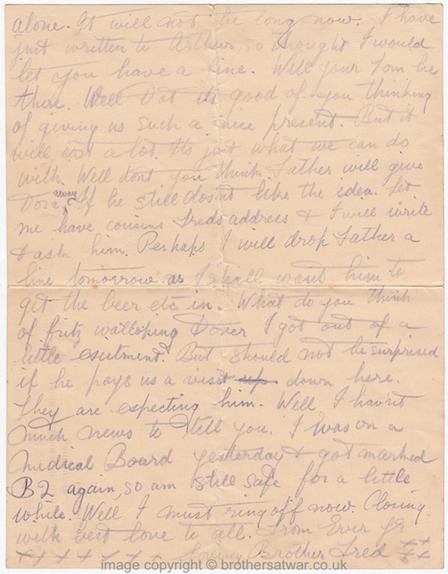 alone. It will not be long now. I have
just written to Arthur, so thought I would
let you have a line. Will your Tom be
there. Well Dot its good of you thinking
of giving us such a nice present. But it
will cost a lot. Its just what we can do
with. Well dont you think Father will give
Dora away. If he still doesnt like the idea. Let
me have cousin Freds address & I will write
& ask him. Perhaps I will drop Father a
line tomorrow as I shall want him to
get the beer etc in. What do you think
of fritz walloping Dover I got out of a
little exsitment. But should not be surprised
if he pays us a visit up down here.
They are expecting him. Well, I havnt
much news to tell you. I was on a
Medical Board yesterday & got marked
B2 again, so am still safe for a little
while. Well I must ring off now. Closing
with best love to all. From Ever Yr
x x + x x + x Loving Brother Fred x x
image copyright © brothersatwar.co.uk